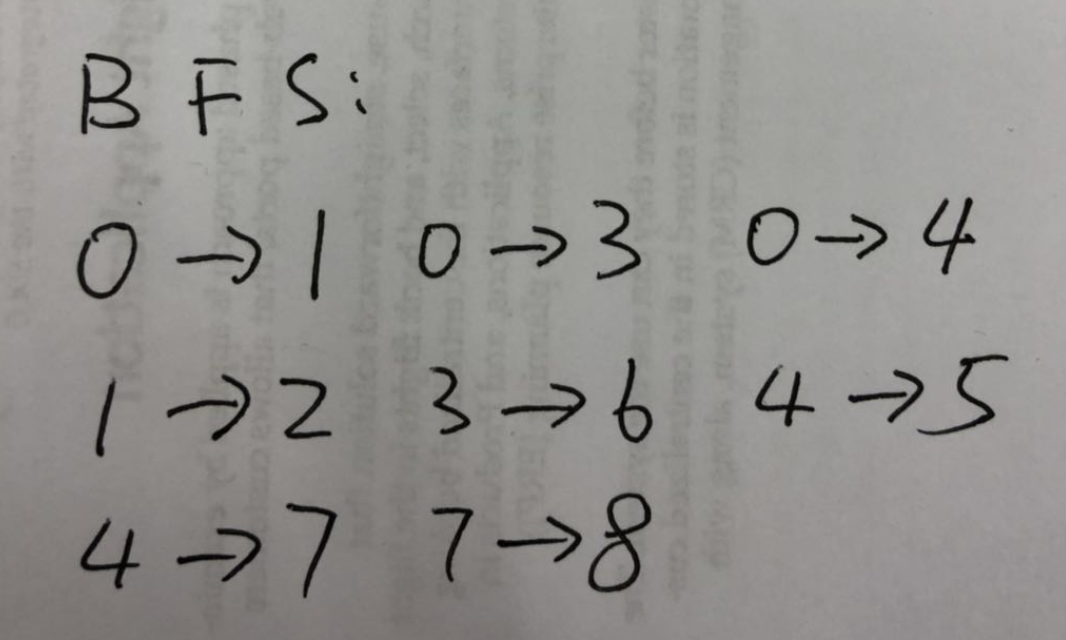 BFS:
0→1 0→3 0→4
1→2 3→6 4→5
4→7 7→8